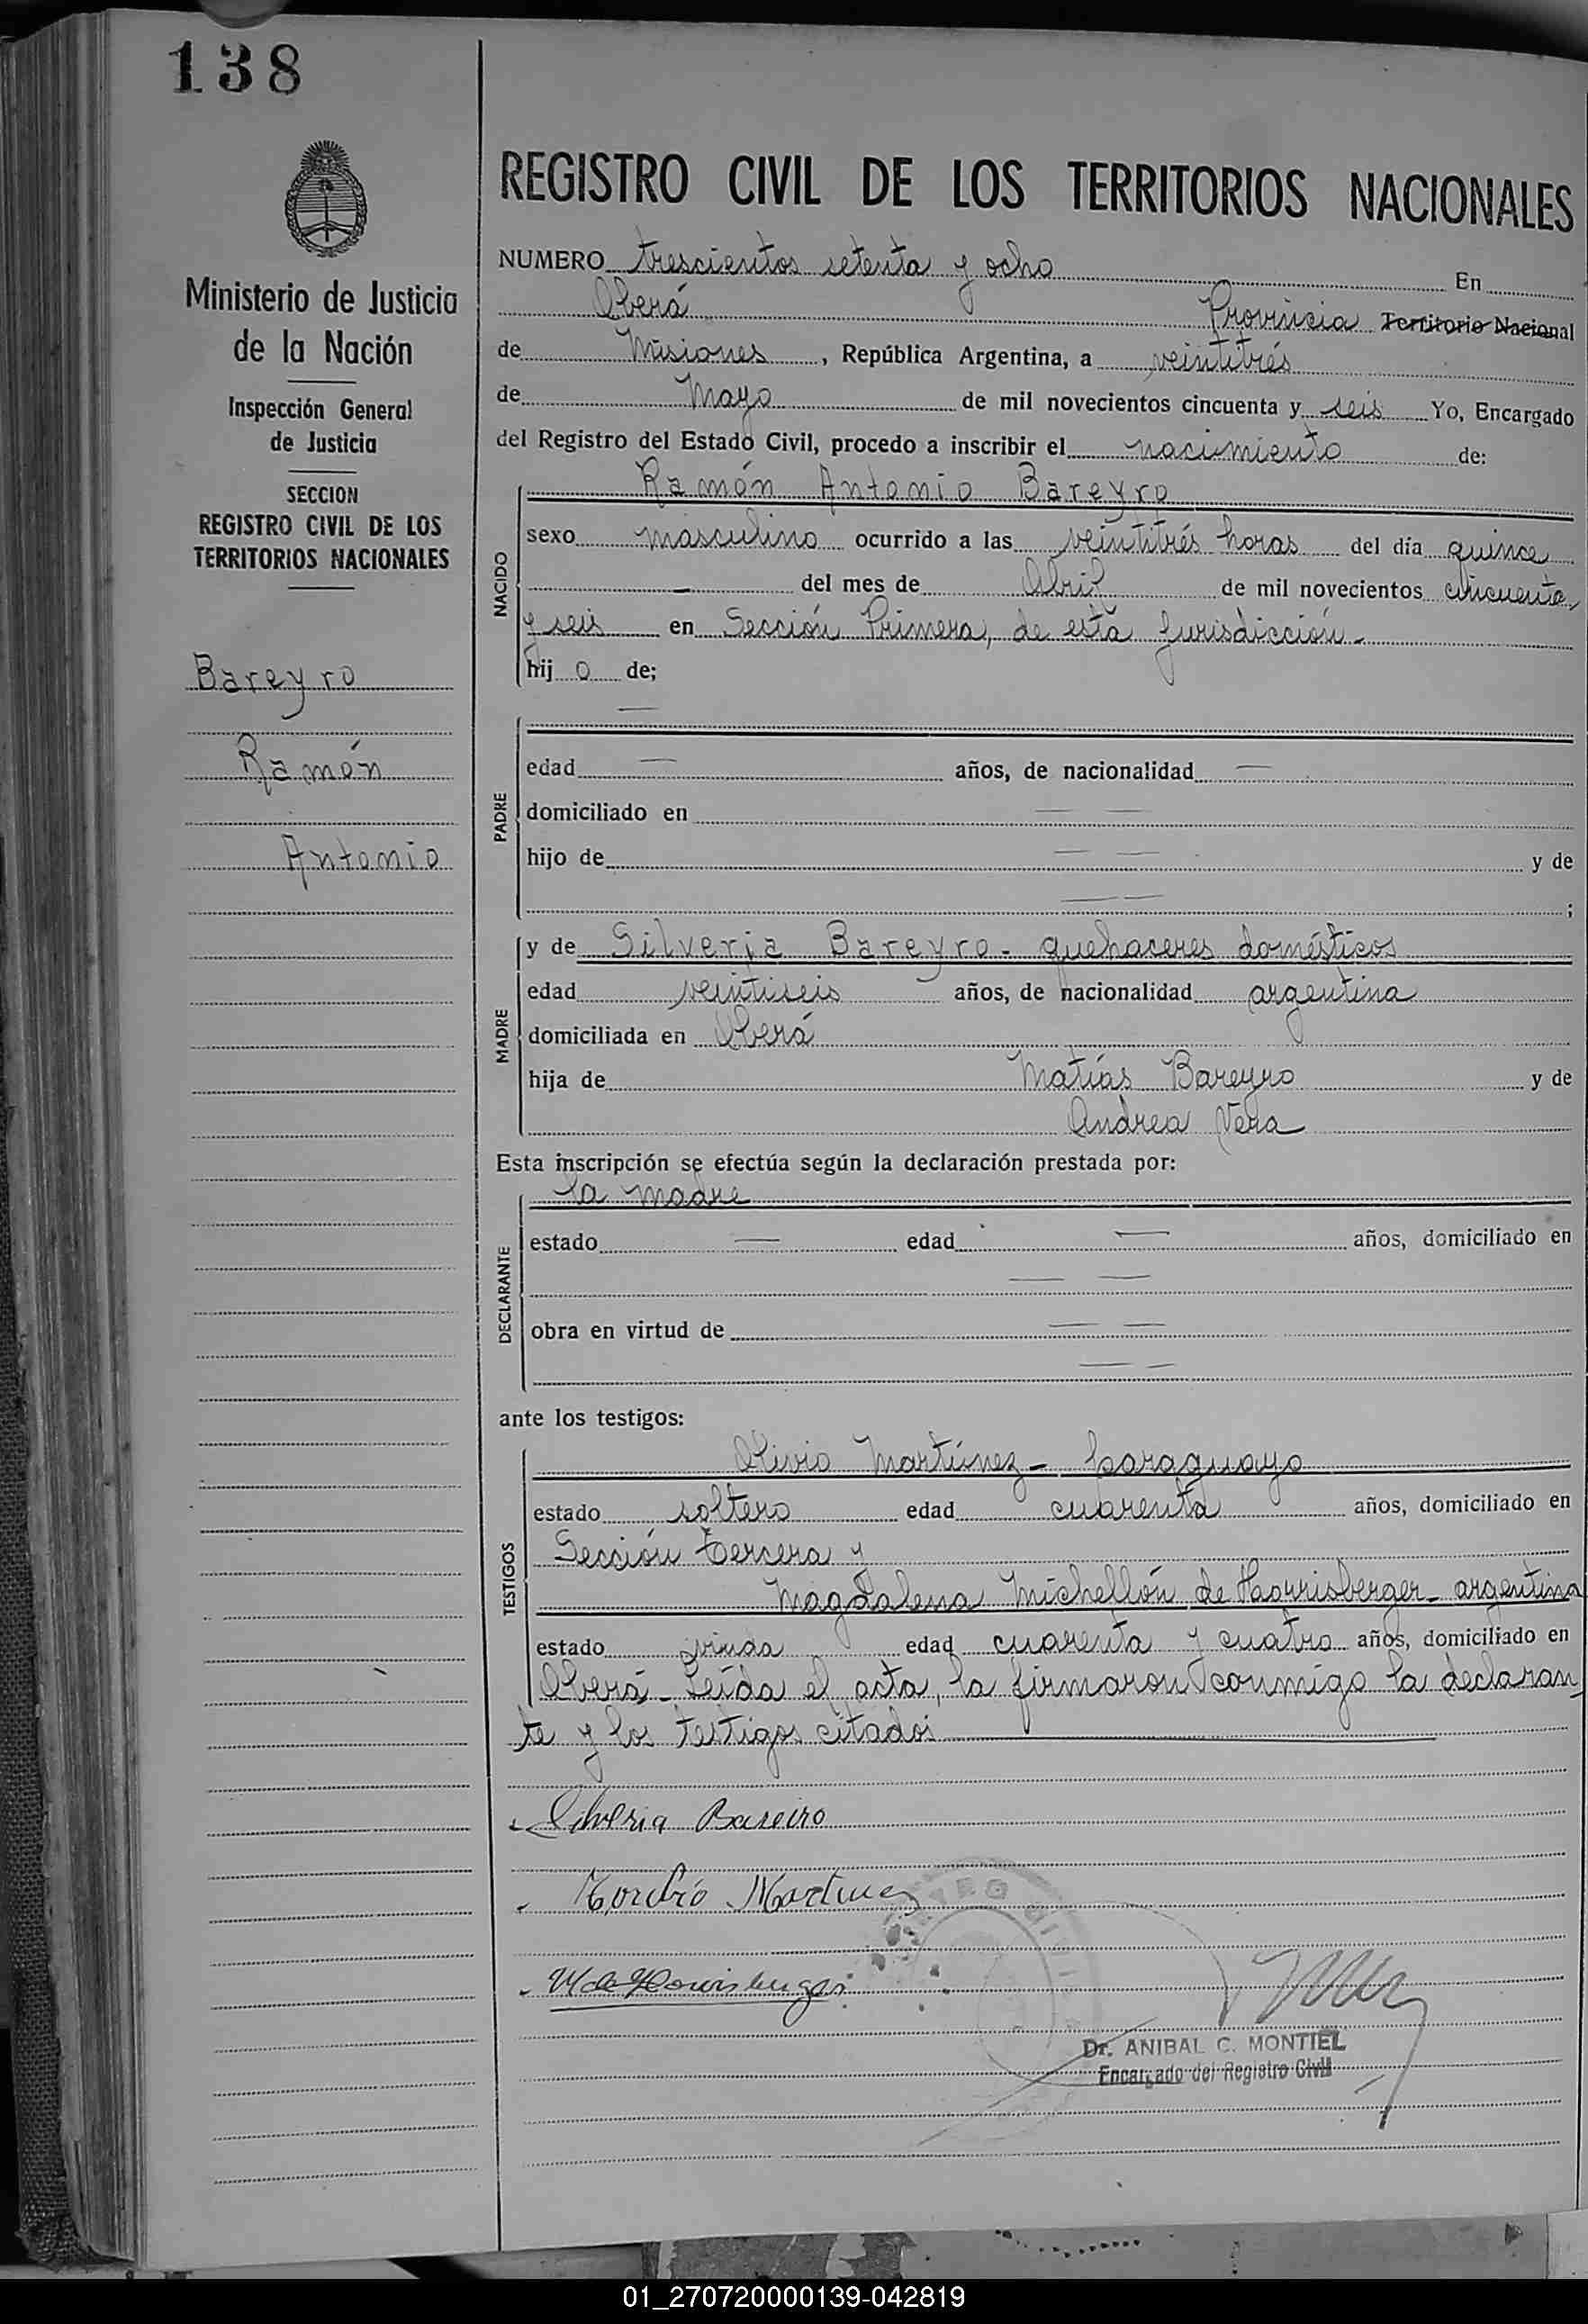 138
Ministerio de Justicia
de la Nación
Inspección General
de Justicia
SECCION
REGISTRO CIVIL DE LOS
TERRITORIOS NACIONALES
Bareyro
Ramón
Antonio
REGISTRO CIVIL DE LOS TERRITORIOS NACIONALES
NUMERO trescientos setenta y ocho En
Oberá Provincia Territorio Nacional
de Misiones, República Argentina, a veintitrés
de Mayo de mil novecientos cincuenta y seis Yo, Encargado
del Registro del Estado Civil, procedo a inscribir el nacimiento de:
Ramón Antonio Bareyro
NACIDO
sexo masculino ocurrido a las veintitrés horas del día quince
— del mes de Abril de mil novecientos cincuenta
y seis en Sección Primera, de esta jurisdicción.-
hij o de;
—
PADRE
edad — años, de nacionalidad —
domiciliado en — —
hijo de — — y de
— — ;
MADRE
y de Silveria Bareyro - quehaceres domésticos
edad veintiseis años, de nacionalidad argentina
domiciliada en Oberá
hija de Matías Bareyro y de
Andrea Vera
Esta inscripción se efectúa según la declaración prestada por:
la madre
DECLARANTE
estado — edad — años, domiciliado en
— —
obra en virtud de — —
— —
ante los testigos:
TESTIGOS
Martínez - paraguayo
estado soltero edad cuarenta años, domiciliado en
Sección Tercera y
Magdalena Michellón de Hornisberger - argentina
estado viuda edad cuarenta y cuatro años, domiciliado en
Oberá - Leída el acta, la firmaron conmigo la declaran
te y los testigos citados
Silveria Bareiro
Martinez
Dr. ANIBAL C. MONTIEL
Encargado del Registro Civil
01_270720000139-042819